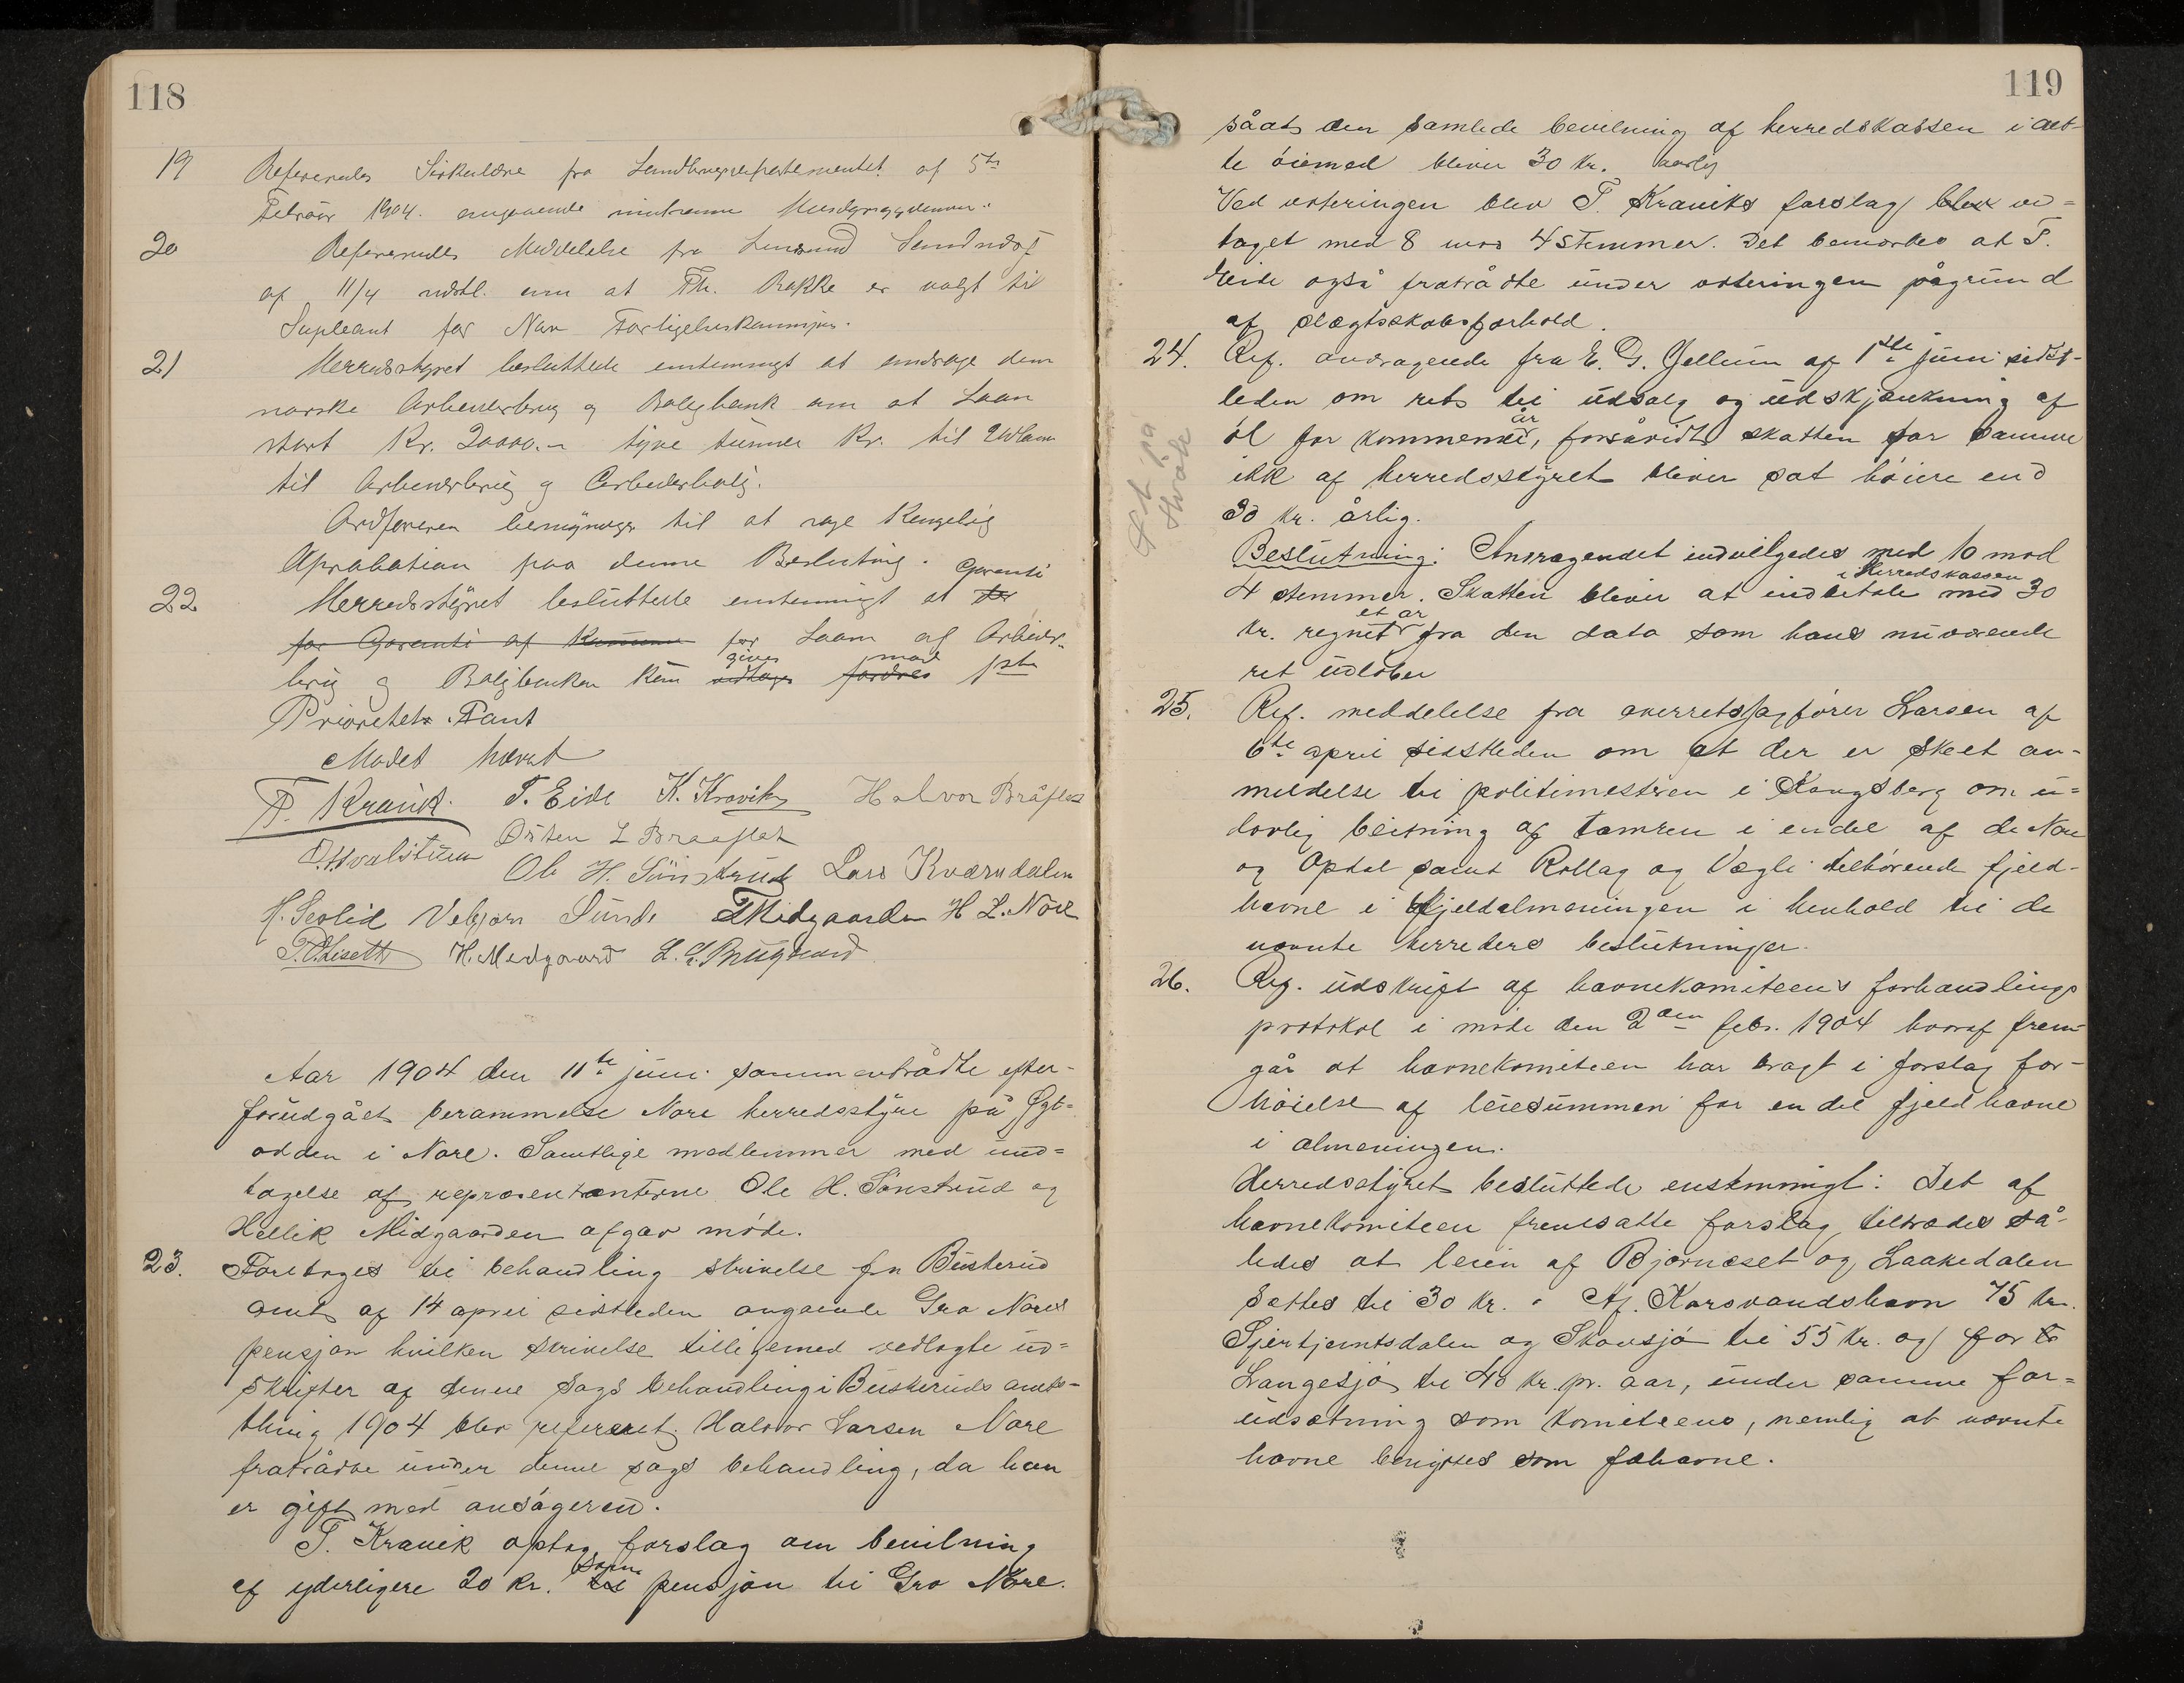 118
19 Refereredes Sirkulære fra Landbrugsdepartementet af 5te
Februar 1904. angaaende
20 Refereredes Meddelelse fra Lensmand
af 11/4 om at Th. Bakke er valgt til
Supleant for Nore Forligelseskommisjon.
21 Herredsstyret besluttede enstemmigt at andrage den
norske Arbeiderbrug og Boligbank om et Laan
stort Kr. 20000.- tyve tusinde Kr. til Udlaan
til Arbeiderbrug og Arbeiderbolig.
Ordføreren bemyndiges til at søge Kongelig
Aprobation paa denne Beslutning.
22 Herredsstyret besluttede enstemmigt at Garanti
for Garanti af Kommunen for Laan af Arbeider-
brug og Boligbanken kun gives mod 1ste
Prioritets Pant
Mødet hævet
T. Kravik. T. Eide K. Kravik Halvor Bråflat
O. Hvalstuen Østen L Braaflat
Ole H. Sönstrud Lars Kværndalen
H. Seolid Vebjørn Sunde T Midgaarden H L. Nore
T. O. Liseth H. Medgaard L. G. Bruggaard
Aar 1904 den 11te juni sammentrådte efter
forudgået berammelse Nore herredsstyre på Sgt-
odden i Nore. Samtlige medlemmer med und=
tagelse af repræsentanterne Ole H. Sönstrud og
Hellik Midgaarden afgav möde.
23. Foretoges til behandling skrivelse fra Buskerud
amt af 14 april sidstleden angaaende Gro Nores
pensjon hvilken skrivelse tilligemed vedlagte ud=
skrifter af denne sags behandling i Buskeruds amts-
thing 1904 blev refereret. Halvor Larsen Nore
fratrådte under denne sags behandling, da han
er gift med ansögeren.
T. Kravik optog forslag om bevilning
af yderligere 20 kr. som pensjon til Gro Nore.
119
såat den samlede bevilning af herredskassen i det-
te öiemed bliver 30 kr. aarlig
Ved voteringen blev T. Kraviks forslag blev ved=
taget med 8 mod 4 stemmer. Det bemærkes at T.
Eide også fratrådte under voteringen pågrund
af slægtsskabsforhold.
24. Ref. andragende fra E. G. Gellum af 1ste juni sidst-
leden om ret til udsalg og udskjænkning af
öl for kommende år, forsåvidt skatten for samme
ikke af herredsstyret bliver sat höiere end
30 kr. årlig.
Beslutning: Andragendet indvilgedes med 10 mod
4 stemmer. Skatten bliver at indbetale i Herredskassen med 30
kr. regnet et år fra den dato som hans nuværende
ret udlöber
25. Ref. meddelelse fra overretssagförer Larsen af
6te april sidstleden om at der er skeet an-
meldelse til politimesteren i Kongsberg om u=
lovlig beitning af tamren i endel af de Nore
og Opdal samt Rollag og Vegli tilhörende fjeld-
havne i Fjeldalmeningen i henhold til de
nævnte herreders beslutninger.
26. Ref. udskrift af havnekomiteens forhandlings
protokol i möde den 2den febr. 1904 hvoraf frem-
går at havnekomiteen har bragt i forslag for-
höielse af leiesummen for en del fjeldhavne
i almeningen.
Herredsstyret besluttede enstemmigt: Det af
havnekomiteen fremsatte forslag tiltrædes så-
ledes at leien af Bjorneset og Laakedalen
sættes til 30 kr. " Af Karsvandshavn 75 kr.
Sjertjerntsdalen og Skavsjö til 55 kr. og for
Langesjö til 40 kr. pr. aar, under samme for=
udsætning som komiteens, nemlig at nævnte
havne benyttes som fæhavne.